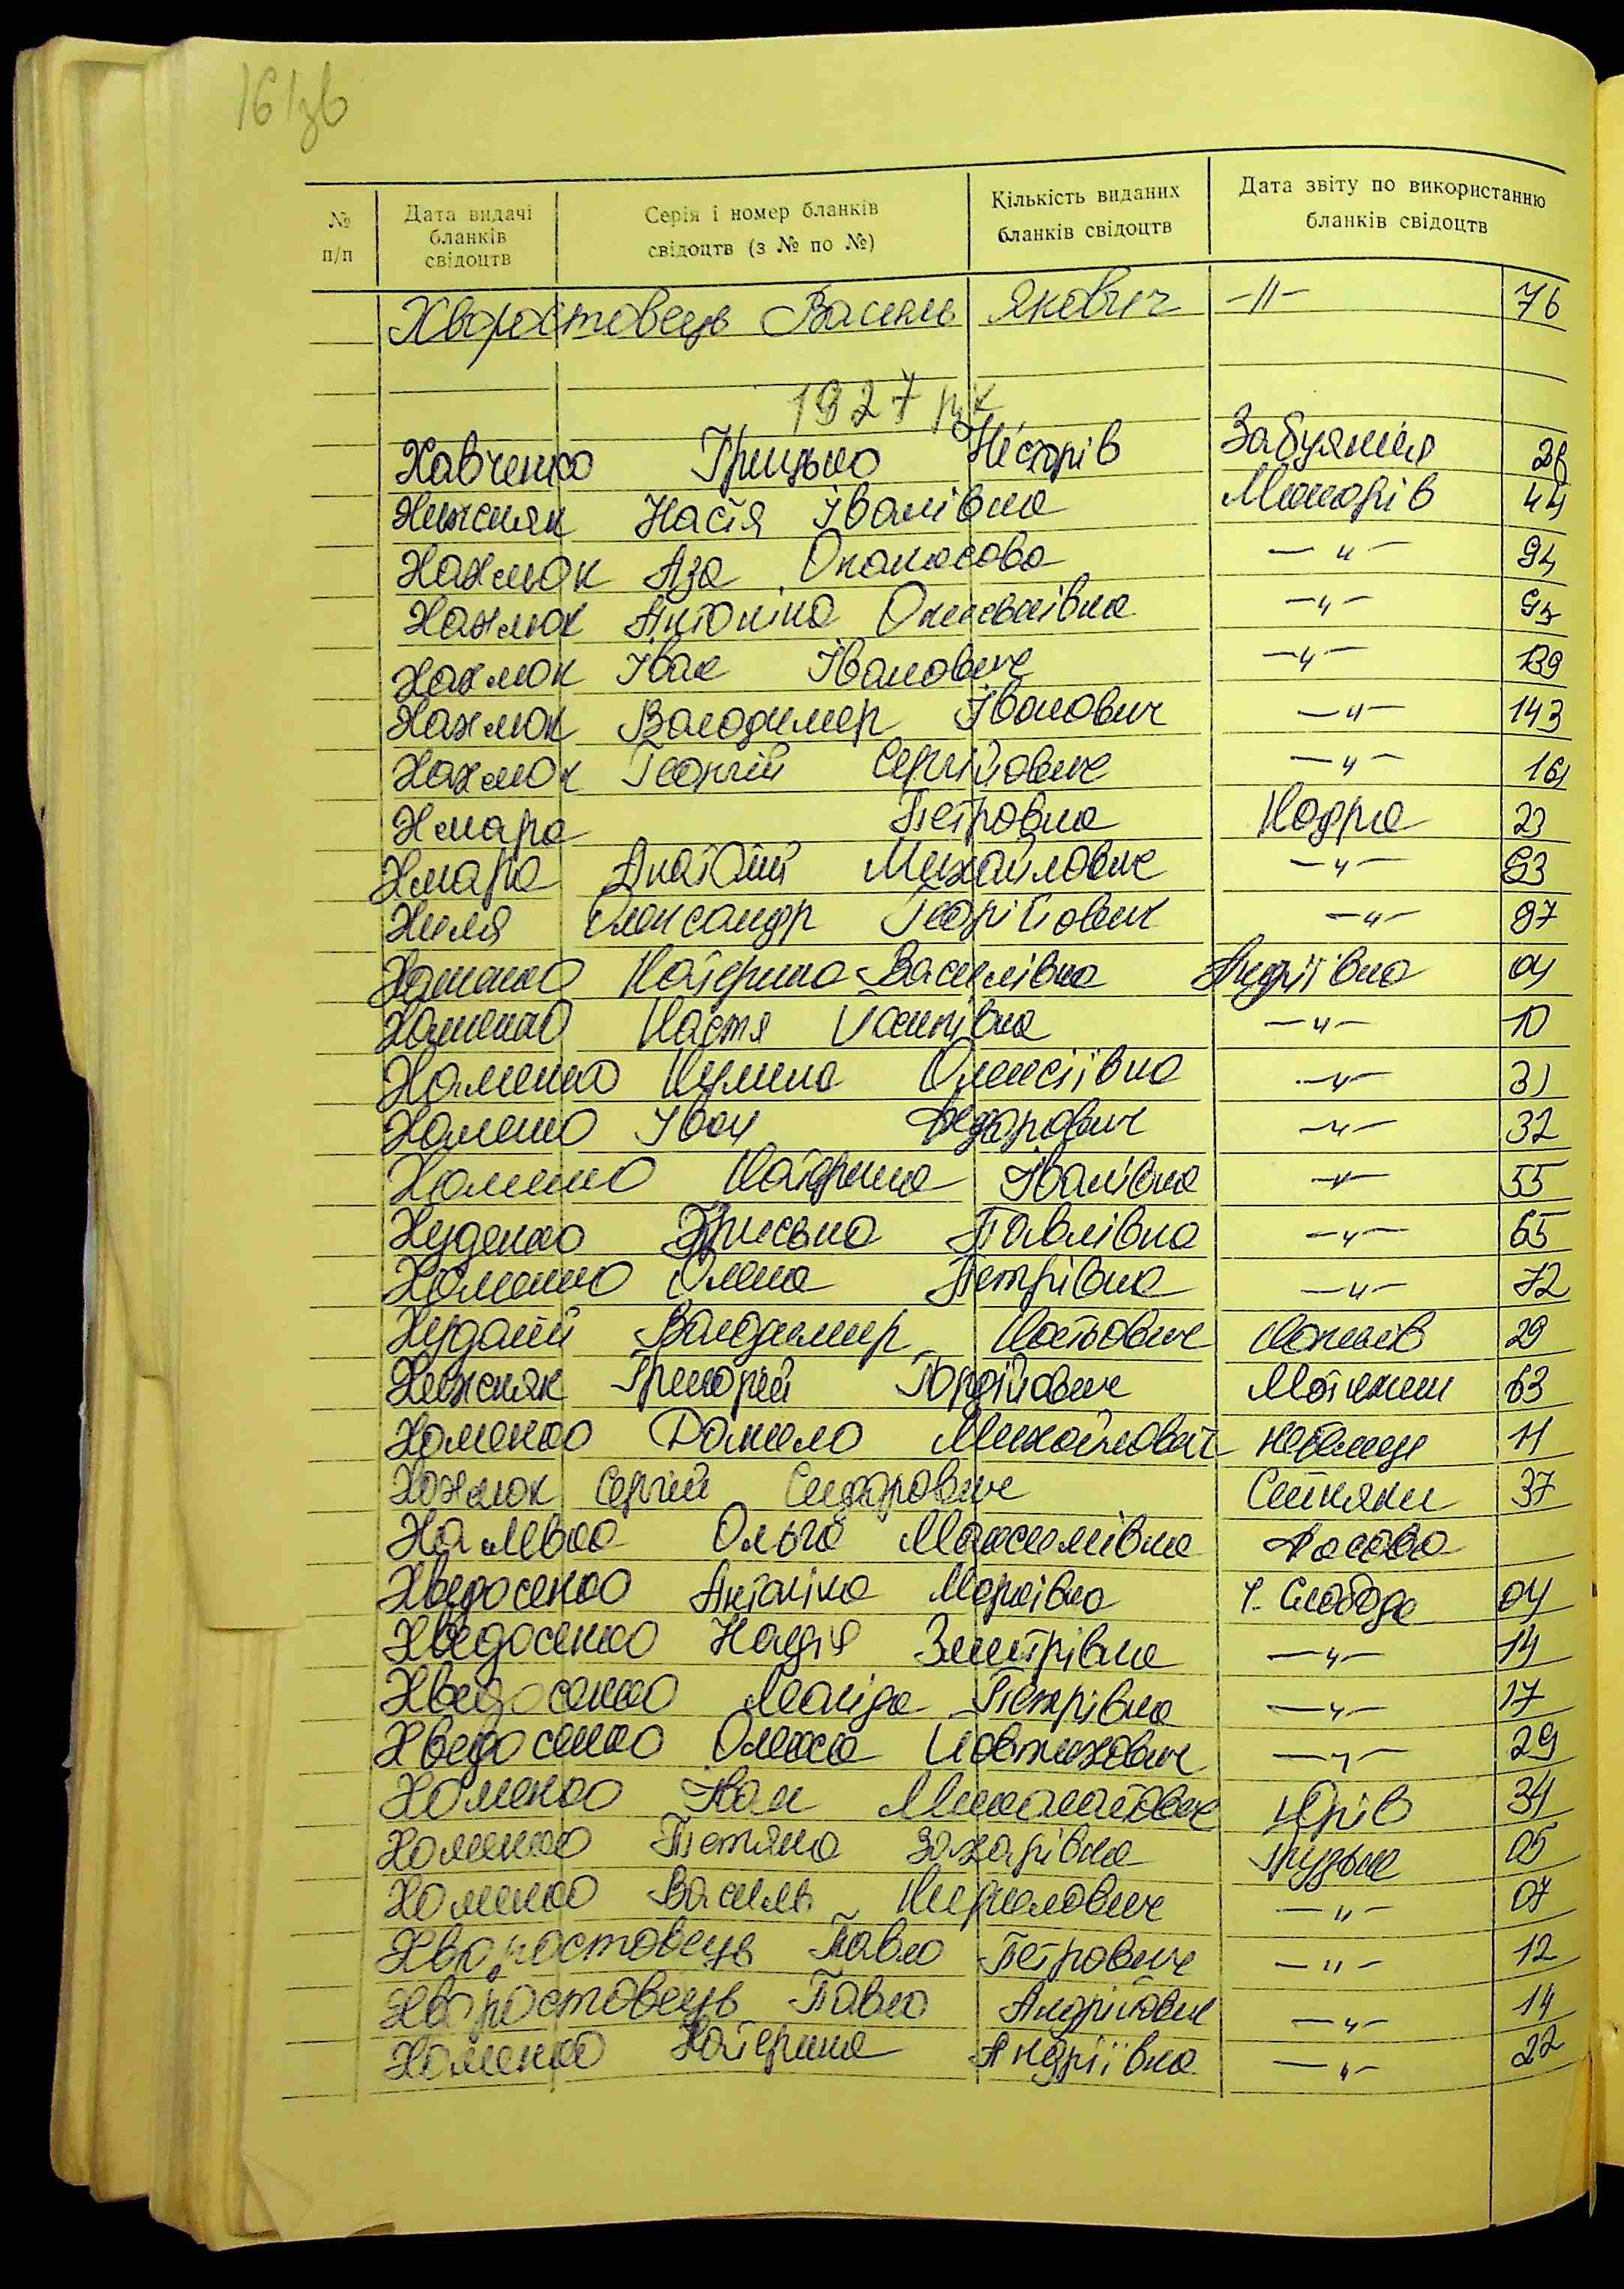 161зв
№ п/п
Дата видачі бланків свідоцтв
Серія і номер бланків свідоцтв (з № по №)
Кількість виданих бланків свідоцтв
Дата звіту по використанню бланків свідоцтв
Хворостовець Василь Якович -〃- 76
1927 рік
Хавченко Грицько Несторів Забуяння 28
Хижняк Настя Іванівна Макарів 44
Хахлюк Аза Опанасова -〃- 94
Хахлюк Антоніна Олексіївна -〃-
Хахлюк Іван Іванович -〃- 139
Хахлюк Володимир Іванович -〃- 143
Хахлюк Георгій Сергійович -〃- 161
Хмара Петровна Кодра 23
Хмара Анатолій Михайлович -〃- 93
Хиля Олександр Георгійович -〃- 97
Хоменко Катерина Василівна Андріївка 04
Хоменко Настя Йосипівна -〃- 10
Хоменко Кулина Олексіївна -〃- 31
Хоменко Іван Федорович -〃- 32
Хоменко Катерина Іванівна -〃- 55
Худенко Приська Павлівна -〃- 65
Хоменко Олена Петрівна -〃- 72
Володимир 29
Хижняк Григорій Юрійович Мотижин 63
Хоменко Данило Михайлович Небелиця 11
Хахлюк Сергій Сидорович Ситняки 37
Ольга Максимівна Фасова
Хведосенко Антоніна Марківна Ч. Слобода 04
Хведосенко Надія Змитрівна -〃- 14
Хведосенко Леоніда Петрівна -〃- 17
Хведосенко Олекса Йовтихович -〃- 29
Хоменко Іван Юрів 34
Хоменко Тетяна Захарівна Грузьке 05
Хоменко Василь Кирилович -〃- 07
Хворостовець Павло Петрович -〃- 12
Хворостовець Павло Андрійович -〃- 14
Хоменко Катерина Андріївна -〃- 22